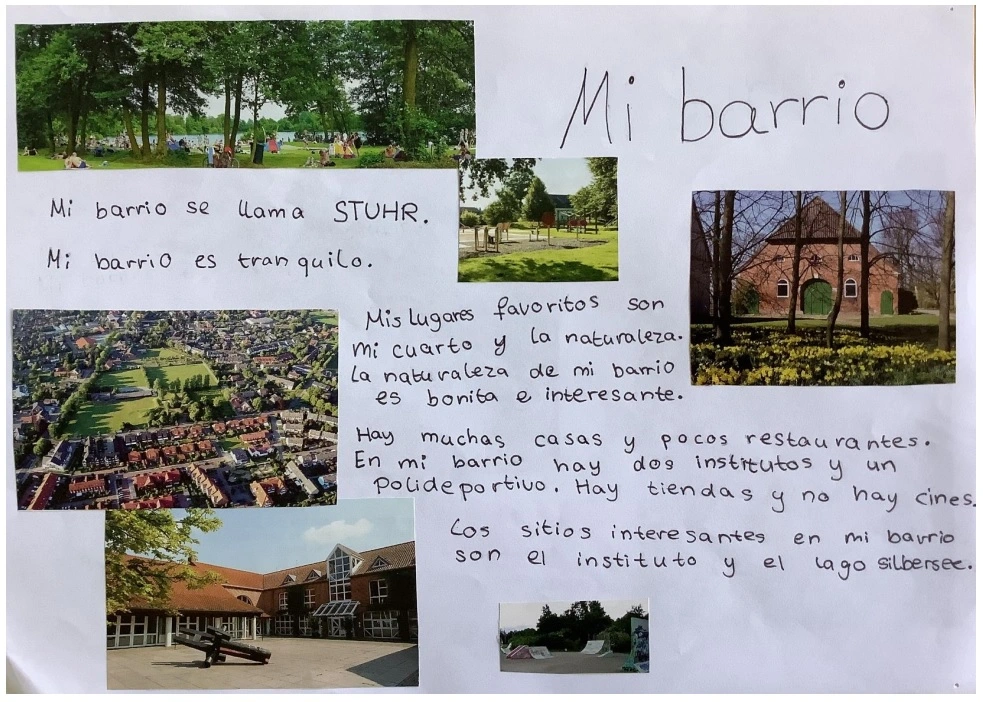 Mi barrio
Mi barrio se llama STUHR.
Mi barrio es tranquilo.
Mis lugares favoritos son
mi cuarto y la naturaleza.
La naturaleza de mi barrio
es bonita e interesante.
Hay muchas casas y pocos restaurantes.
En mi barrio hay dos institutos y un
polideportivo. Hay tiendas y no hay cines.
Los sitios interesantes en mi barrio
son el instituto y el lago silbersee.